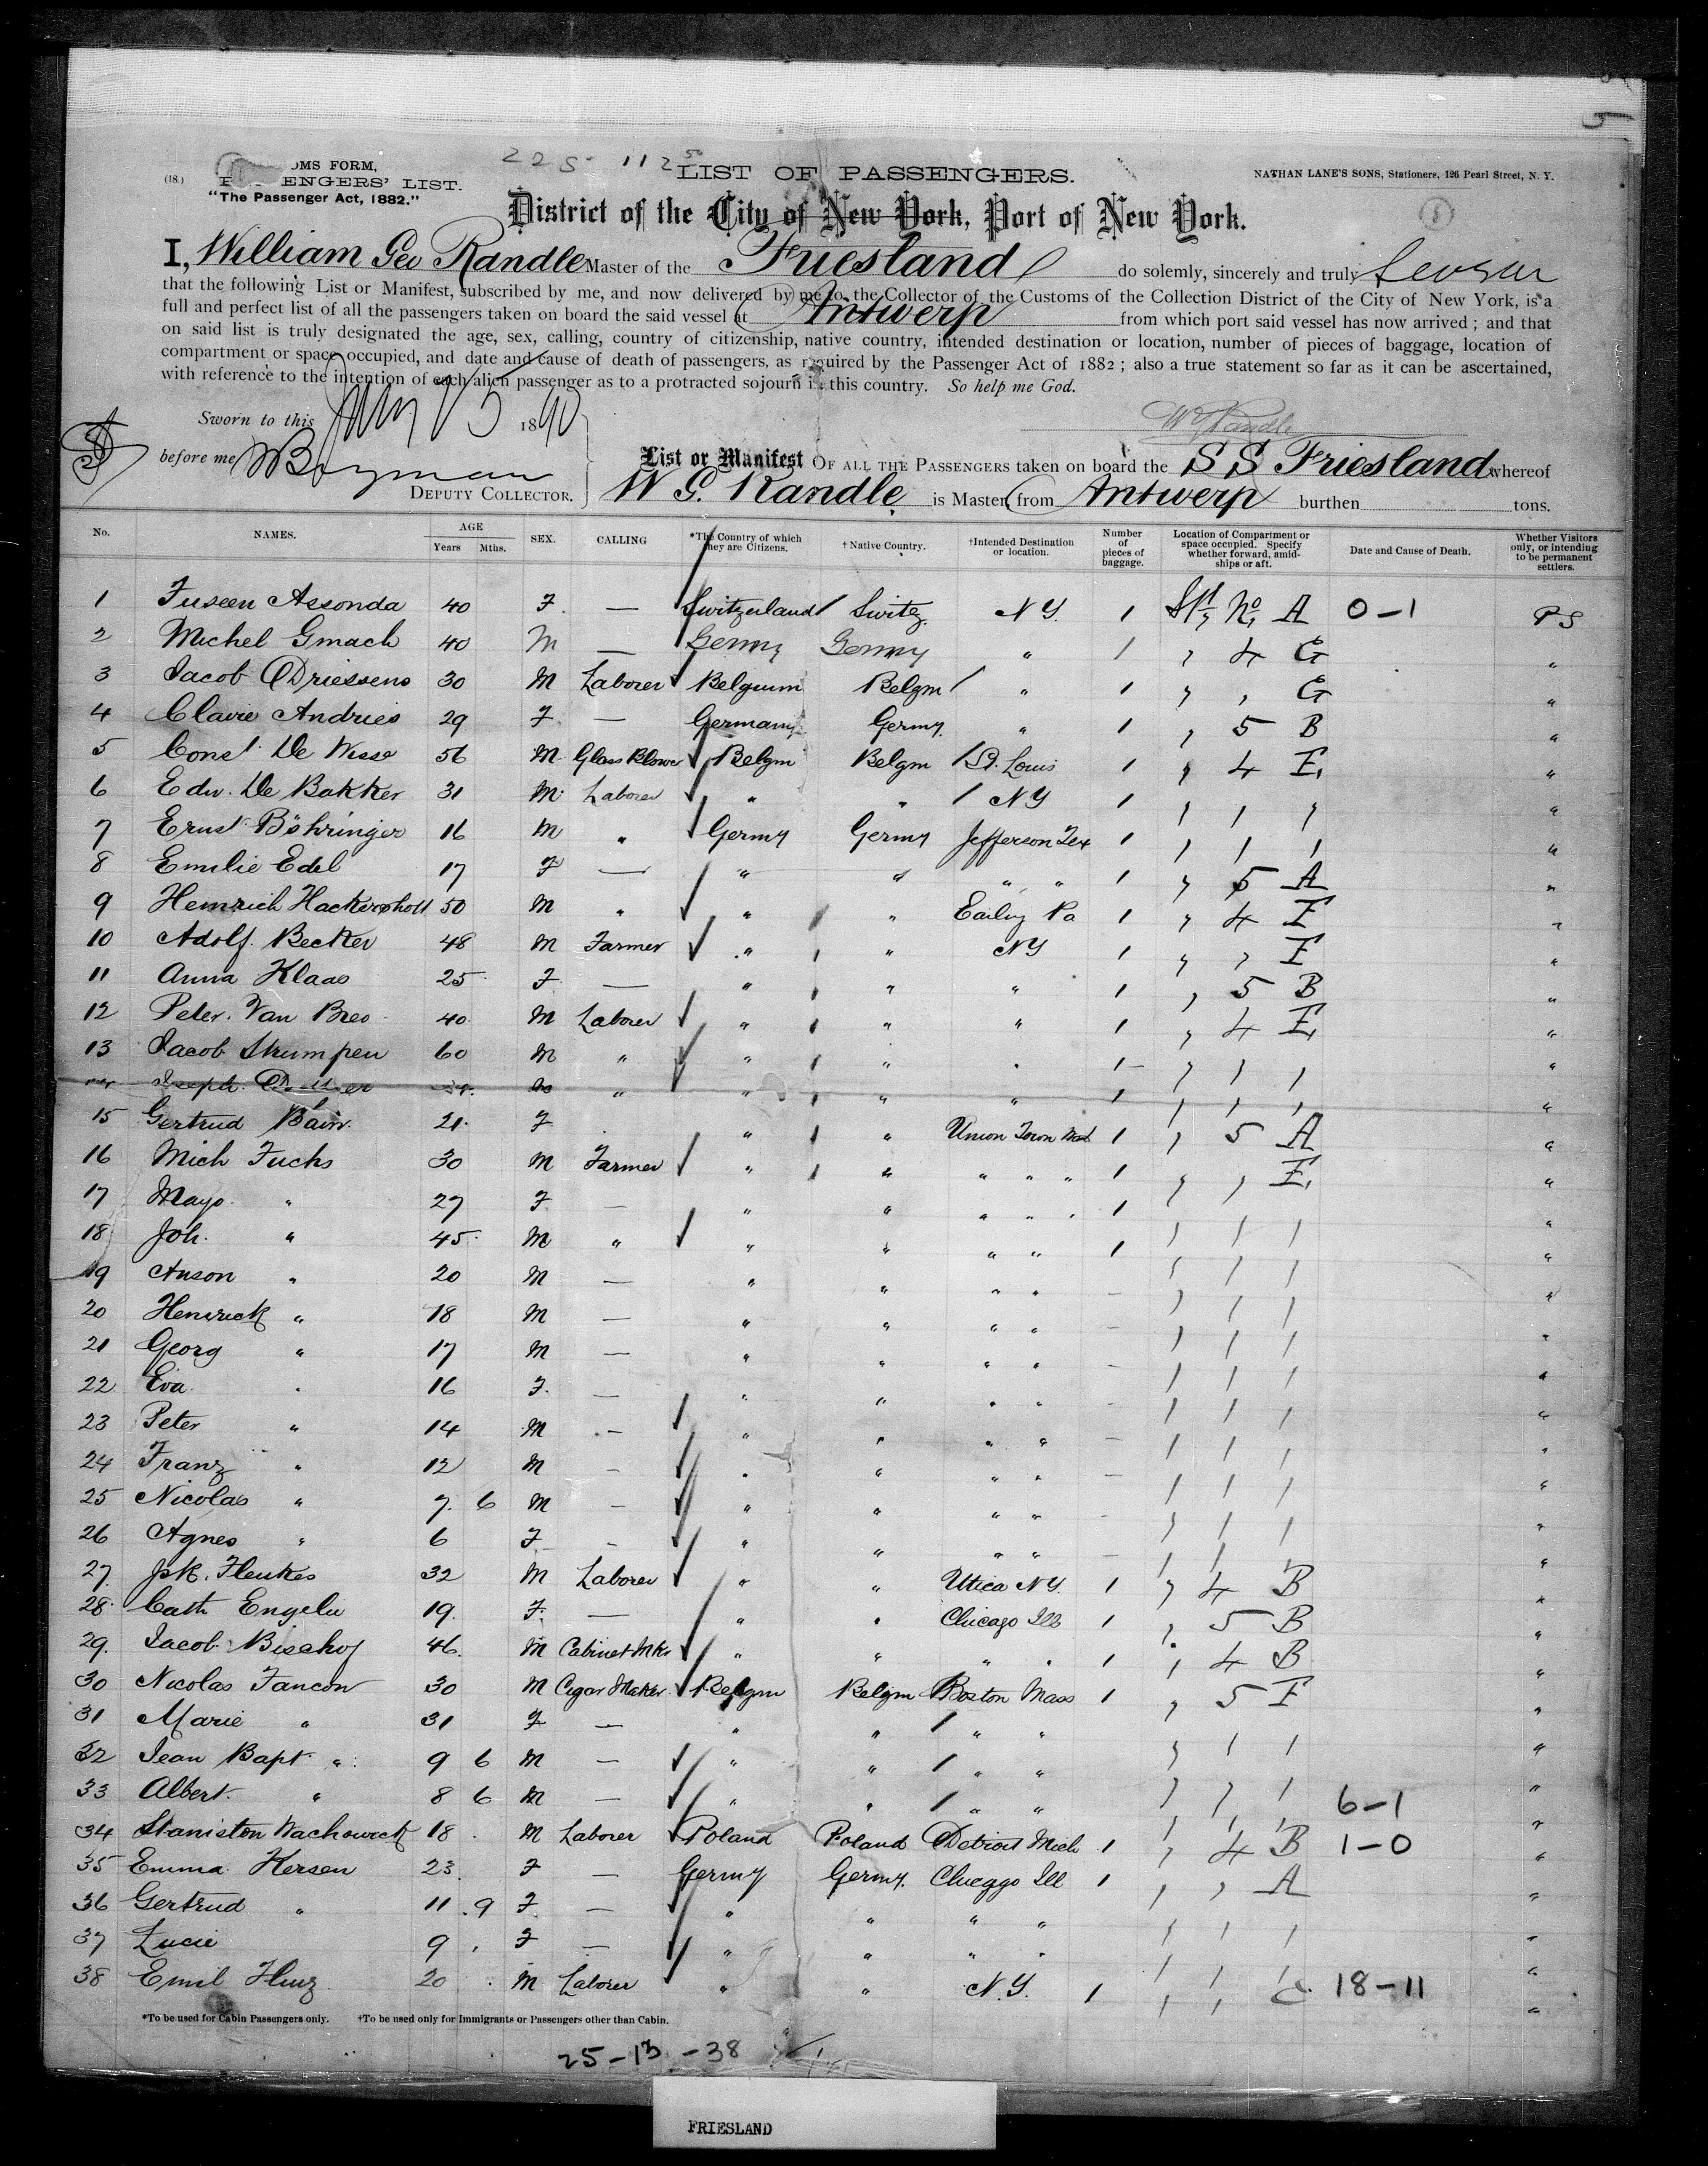 5
225 1125
(18.) OMS FORM,
ENGERS' LIST.
"The Passenger Act, 1882."
LIST OF PASSENGERS.
NATHAN LANE'S SONS, Stationers, 126 Pearl Street, N. Y.
District of the City of New York, Port of New York.
I, William Geo Randle Master of the Friesland do solemnly, sincerely and truly swear
that the following List or Manifest, subscribed by me, and now delivered by me to the Collector of the Customs of the Collection District of the City of New York, is a
full and perfect list of all the passengers taken on board the said vessel at Antwerp from which port said vessel has now arrived ; and that
on said list is truly designated the age, sex, calling, country of citizenship, native country, intended destination or location, number of pieces of baggage, location of
compartment or space occupied, and date and cause of death of passengers, as required by the Passenger Act of 1882 ; also a true statement so far as it can be ascertained,
with reference to the intention of each alien passenger as to a protracted sojourn in this country. So help me God.
Sworn to this 15 1890
W G Randle
before me
DEPUTY COLLECTOR.
List or Manifest OF ALL THE PASSENGERS taken on board the S S Friesland whereof
W G. Randle is Master, from Antwerp burthen tons.
No. NAMES. AGE Years Mths. SEX. CALLING *The Country of which they are Citizens. †Native Country. †Intended Destination or location. Number of pieces of baggage. Location of Compartment or space occupied. Specify whether forward, amidships or aft. Date and Cause of Death. Whether Visitors only, or intending to be permanent settlers.
1 Assonda 40 F. — Switzerland Switz. NY. 1 No A 0-1 PS
2 Michel Gmach 40 M — Germy Germy " 1 , 4 G "
3 Jacob Driessens 30 M Laborer Belgium Belgm " 1 , , G "
4 Claire Andries 29 F — Germany Germy. " 1 , 5 B "
5 Const. De Wisse 56 M. Glass Blower Belgm Belgm St. Louis 1 , 4 E "
6 Edw. De Bakker 31 M. Laborer " " NY 1 , , , "
7 Ernst Böhringer 16 M " Germy Germy Jefferson Tex 1 , , , "
8 Emilie Edel 17 F — " " " " 1 , 5 A "
9 Heinrich 50 M " " " Pa 1 , 4 E "
10 Adolf Becker 48 M Farmer " " NY 1 , , E "
11 Anna Klaas 25 F. — " " " 1 , 5 B "
12 Peter Van Bres 40 M Laborer " " " 1 , 4 E "
13 Jacob Strumpen 60 M " " " " 1 , , , "
Joseph " " " " 1 , , , "
15 Gertrud 21 F " " Union Town 1 , 5 A "
16 Mich Fuchs 30 M Farmer " " " " " 1 , , E "
17 " 27 F. — " " " " " 1 , , , "
18 Joh. " 45 M " " " " " 1 , , , "
19 Anson " 20 M — " " " " , , , "
20 Henrick " 18 M — " " " " — , , , "
21 Georg " 17 M — " " " " — , , , "
22 Eva " 16 F. — " " " " — , , , "
23 Peter " 14 M — " " " " — , , , "
24 Franz " 12 M — " " " " — , , , "
25 Nicolas " 7. 6 M — " " " " , , , "
26 Agnes " 6 F — " " " " — , , , "
27 32 M Laborer " " Utica NY. 1 , 4 B "
28 Cath 19. F. — " " Chicago Ill 1 , 5 B "
29. Jacob Bischof 46. M Cabinet Mkr " " " " 1 , 4 B "
30 Nicolas Fancon 30 M Cigar Maker Belgm Belgm Boston Mass 1 , 5 E "
31 Marie " 31 F — " " " " , , , "
32 Jean Bapt " 9 6 M — " " " " , , , "
33 Albert. " 8 6 M — " " " " , , , 6-1 "
34 18 M Laborer Poland Poland Detroit Mich 1 , 4 B 1-0 "
35 Emma Kersen 23 F — Germy Germy. Chicago Ill 1 , , A "
36 Gertrud " 11 9 F — " " " " , , , "
37 Lucie 9 F — " " " " , , , "
38 Emil 20 M Laborer " " N.Y. 1 , , C 18-11 "
*To be used for Cabin Passengers only. †To be used only for Immigrants or Passengers other than Cabin.
25-13-38
FRIESLAND